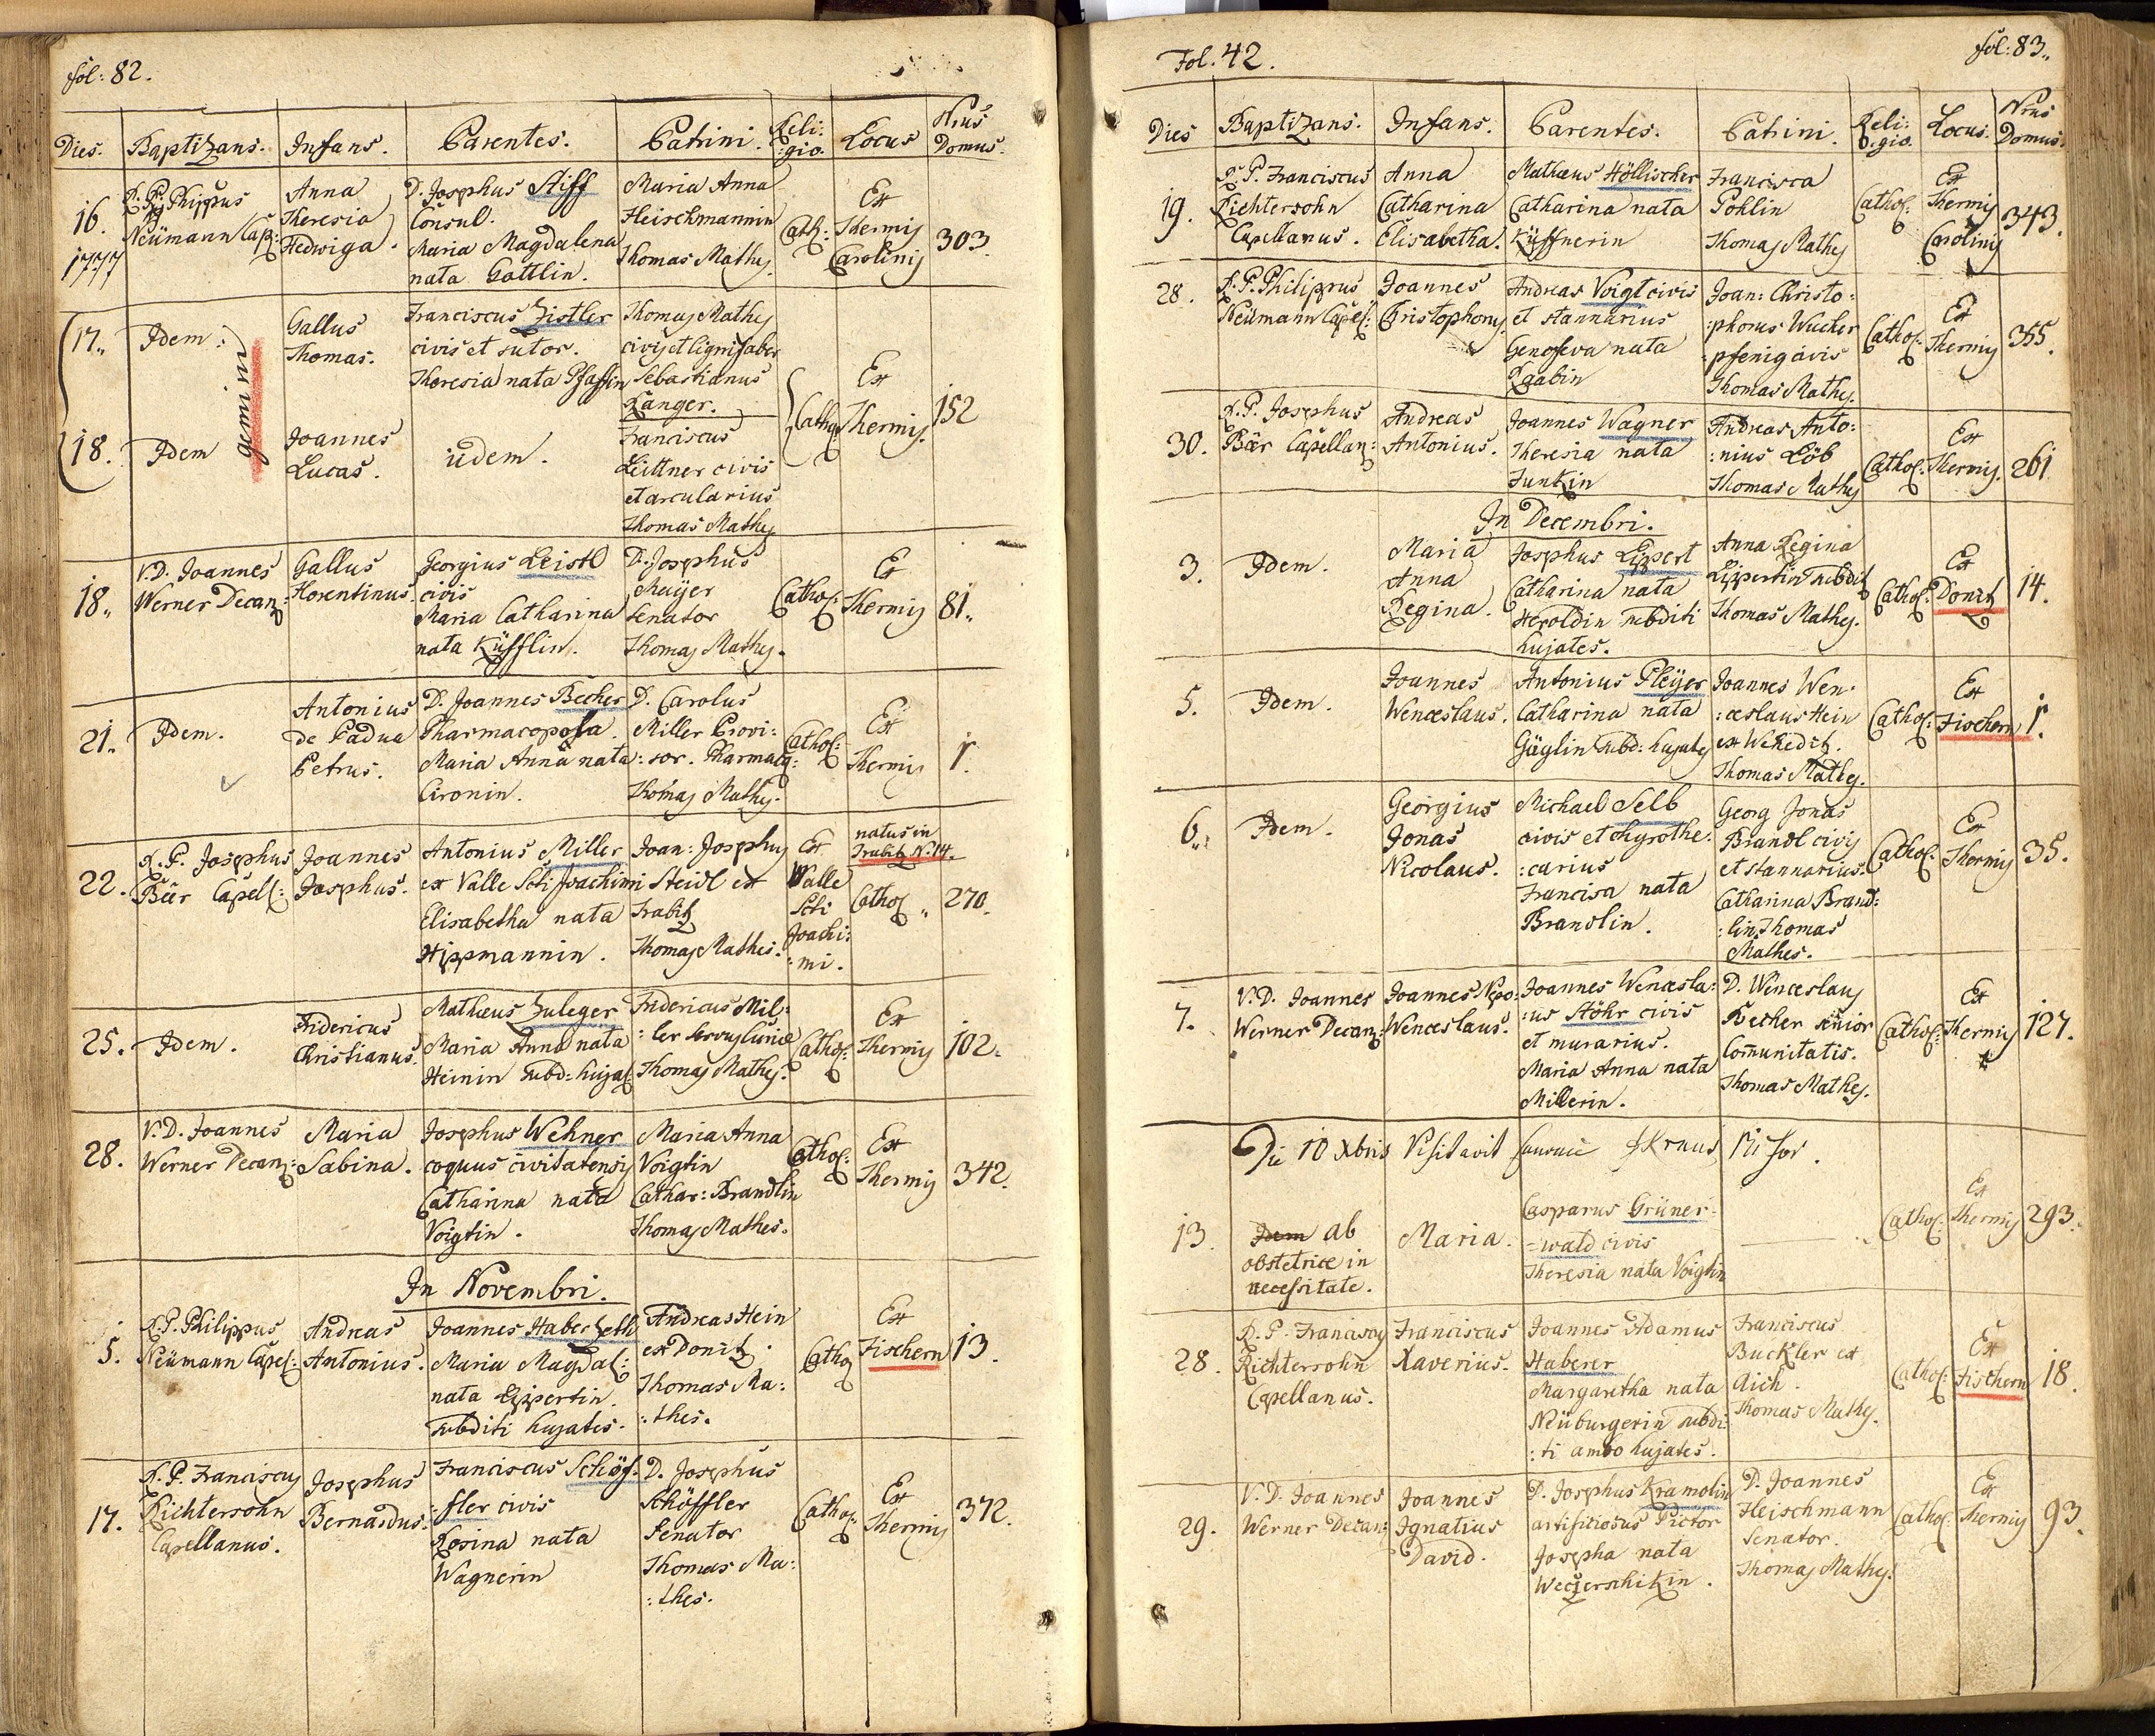 fol: 82.
Dies. Baptizans. Infans. Parentes. Patrini. Reli: Locus Nrus
:gio. Domus.
16. R. P. Phippus Anna D. Josephus Stiff Maria Anna Ex
1777 Neümann Cap: Theresia Consul. Fleischmannin Cath: Thermis 303
Hedwiga. Maria Magdalena Thomas Mathes Carolinis
nata Gottlin.
17. Idem: Gallus Franciscus Zistler Thomas Mathes
Thomas. civis et sutor. civis et lignifaber
gemini
Theresia nata Pfaffin Sebastianus Ex
Langer. Cathol Thermis. 152
18. Idem Joannes iidem. Franciscus
Lucas. Leittner civis
et arcularius
Thomas Mathes
18. V. D. Joannes Gallus Georgius Leistl D: Josephus Ex
Werner Decan: Florentinus. civis Mayer Cathol: Thermis 81.
Maria Catharina Senator
nata Küfflin. Thomas Mathes.
21. Idem. Antonius D. Joannes Becher D. Carolus Ex
de Padua Pharmacopola. Miller Provi: Cathol: Thermis 1.
Petrus. Maria Anna nata :sor. Pharmac:
Cironin. Thomas Mathes.
22. R. P. Josephus Joannes Antonius Miller Joan: Josephus Ex natus in
Bär Capell: Josephus. ex Valle Scti Joachimi Steidl ex Valle Trabitz N. 14.
Elisabetha nata Trabitz Scti Cathol 270.
Hippmannin. Thomas Mathes. Joachi:
:mi.
25. Idem. Fridericus Mathæus Zuleger Fridericus Mil: Ex
Christianus. Maria Anna nata :ler Cathol: Thermis 102.
Heinin subd: hujat: Thomas Mathes.
28. V. D. Joannes Maria Josephus Wehner Maria Anna Ex
Werner Decan: Sabina. coquus civitatensis Voigtin Cathol: Thermis 342.
Catharina nata Cathar: Brandlin
Voigtin. Thomas Mathes.
In Novembri.
5. R. P. Philippus Andreas Joannes Haberzeth Andreas Hein Ex
Neümann Capel: Antonius. Maria Magdal: ex Donitz. Cathol Fischern 13.
nata Lippertin. Thomas Ma:
subditi hujates. :thes.
17. R. P. Franciscus Josephus Franciscus Schöf: D. Josephus Ex
Richtersohn Bernardus. :fler civis Schöffler Cathol: Thermis 372.
Capellanus. Rosina nata Senator
Wagnerin Thomas Ma:
:thes.
Fol. 42. fol: 83.
Dies Baptizans. Infans. Parentes. Patrini. Reli: Locus. Nrus
:gio. Domus.
19. R. P. Franciscus Anna Mathæus Höllischer Francisca Ex
Richtersohn Catharina Catharina nata Pohlin Cathol: Thermis 343.
Capellanus. Elisabetha. Küffnerin Thomas Mathes Carolinis
28. R. P. Philippus Joannes Andreas Voigt civis Joan: Christo: Ex
Neümann Capel: Christophorus et stannarius :phorus Wucher Cathol: Thermis 355.
Genofeva nata pfenig civis
Zgabin Thomas Mathes.
30. R. P. Josephus Andreas Joannes Wagner Andreas Anto: Ex
Bär Capellan: Antonius. Theresia nata :nius Löb Cathol: Thermis. 261
Funkin Thomas Mathes
In Decembri.
3. Idem. Maria Josephus Lippert Anna Regina Ex
Anna Catharina nata Lippertin subdit Cathol: Donitz 14.
Regina. Heroldin subditi Thomas Mathes.
hujates.
5. Idem. Joannes Antonius Pleÿer Joannes Wen: Ex
Wenceslaus. Catharina nata :ceslaus Hein Cathol: Fischern 1.
Gäglin subd: hujates ex Weheditz.
Thomas Mathes.
6. Idem. Georgius Michael Selb Georg Jonas Ex
Jonas civis et chyrothe: Brandl civis Cathol: Thermis 35.
Nicolaus. :carius et stannarius.
Francisca nata Catharina Brand:
Brandlin. :lin, Thomas
Mathes.
7. V. D. Joannes Joannes Nepo: Joannes Wencesla: D. Winceslaus Ex
Werner Decan: Wenceslaus. :us Stöhr civis Becher senior Cathol: Thermis 127.
et murarius. Com̃unitatis.
Maria Anna nata Thomas Mathes.
Millerin.
Die 10 Xbris Visitavit
13. Idem ab Maria. Casparus Grüner= Ex
obstetrice in =wald civis Cathol: Thermis 293.
necessitate. Theresia nata Voigtin
28. R. P. Franciscus Franciscus Joannes Adamus Franciscus Ex
Richtersohn Xaverius. Haberer Buckler ex Cathol: Fischern 18.
Capellanus. Margaretha nata Aich.
Neüburgerin subdi: Thomas Mathes.
:ti ambo hujates.
29. V. D. Joannes Joannes D. Josephus Kramolin D. Joannes Ex
Werner Decan: Ignatius artificiosus Pictor Fleischmann Cathol: Thermis 93.
David. Josepha nata Senator.
Thomas Mathes.